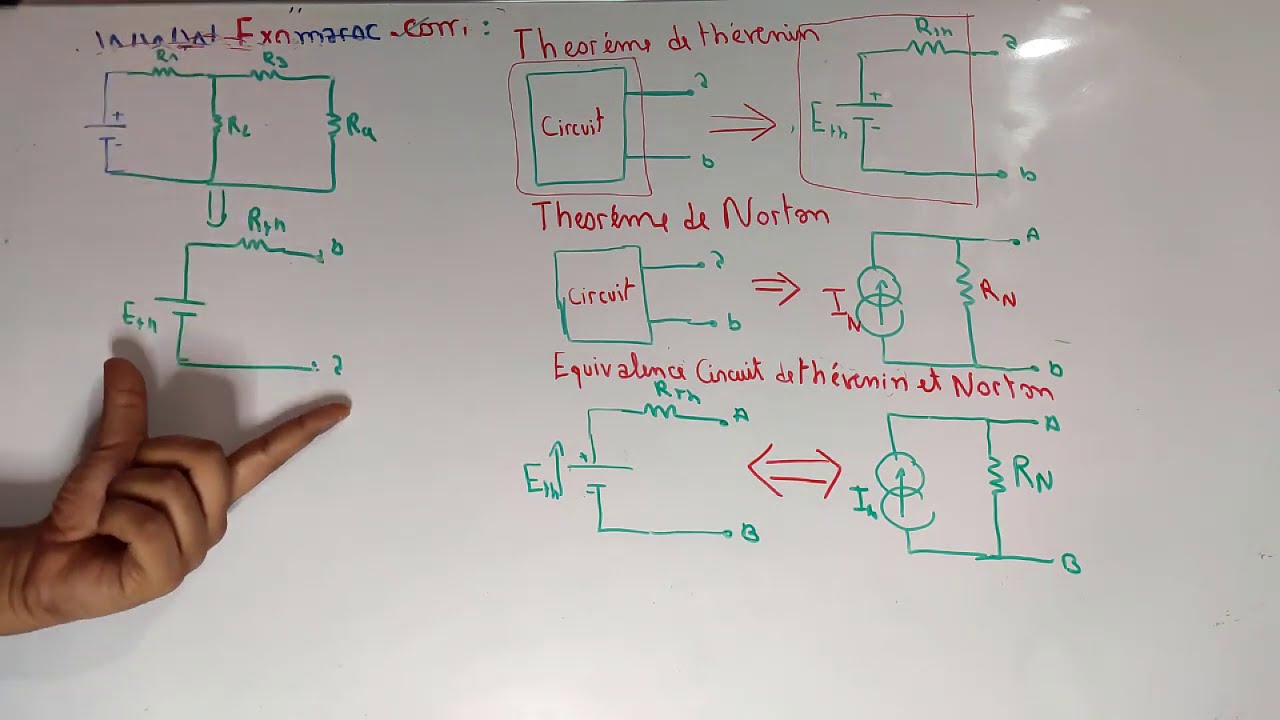 Exnmaroc.com :
R1 R3
+
-
R2
R4
Rth
b
Eth
a
Theoréme de thévenin
Circuit
a
b
Rth
a
+
Eth
-
b
Theoréme de Norton
Circuit
a
b
A
IN
RN
b
Equivalence Circuit de thévenin et Norton
Rth
A
+
Eth
-
B
A
IN
RN
B